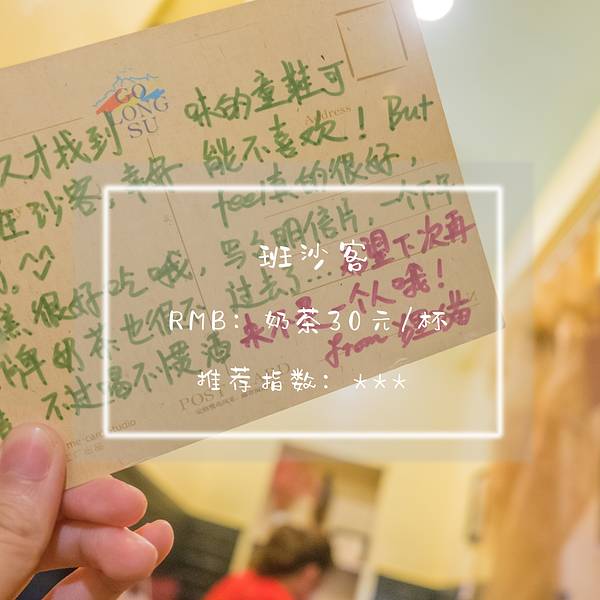 GO
LONG
SU
Address
味的童鞋可
能不喜欢！But
feel真的很好，
写个明信片，一个下午
过去了...希望下次再
来不是一个人哦！
from
久才找到
班沙客，幸好
糕很好吃哦，
牌奶茶也很不
不过喝不惯酒
班沙客
RMB：奶茶30元/杯
推荐指数：***
POST CARD
me card studio